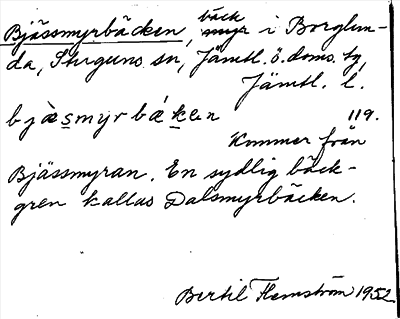 Bjässmyrbäcken, bäck i Borglun-
da, Stuguns sn, Jämtl. ö. doms. tg,
Jämtl. l.
bjäsmyrbäken 119.
Kommer från
Bjässmyran. En sydlig bäck-
gren kallas Dalsmyrbäcken.
Bertil Flemström 1952